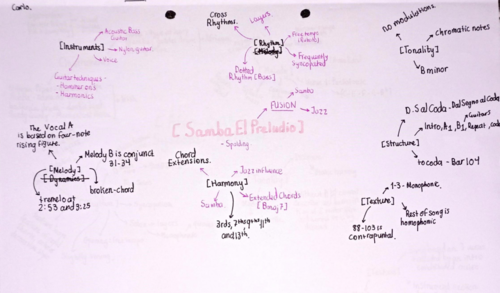 Carlo.
Acoustic Bass
Guitar
[Instruments]
Nylon guitar.
Voice
Guitar techniques -
- Hammer ons
- Harmonics
Cross
Rhythms.
Layers
[Rhythm]
Frequently
Syncopated
Dotted
Rhythm [Bass]
no modulations
chromatic notes
[Tonality]
B minor
Samba
FUSION
Jazz
[Samba El Preludio]
- Spalding
The Vocal A
is based on four-note
rising figure.
Melody B is conjunct
31-34
[Melody]
[Dynamics]
broken-chord
tremolo at
2:53 and 3:25
Chord
Extensions.
Jazz influence
[Harmony]
Samba
Extended Chords
[Bmaj7]
3rds, 7ths 9ths 11th
and 13th.
D.S al Coda. Dal Segno al Coda
Guitar 3
Intro, A1, B1, Repeat, coda
[Structure]
to coda - Bar 104
1-3 - Monophonic.
[Texture]
Rest of song is
homophonic
88-103 is
contrapuntal.